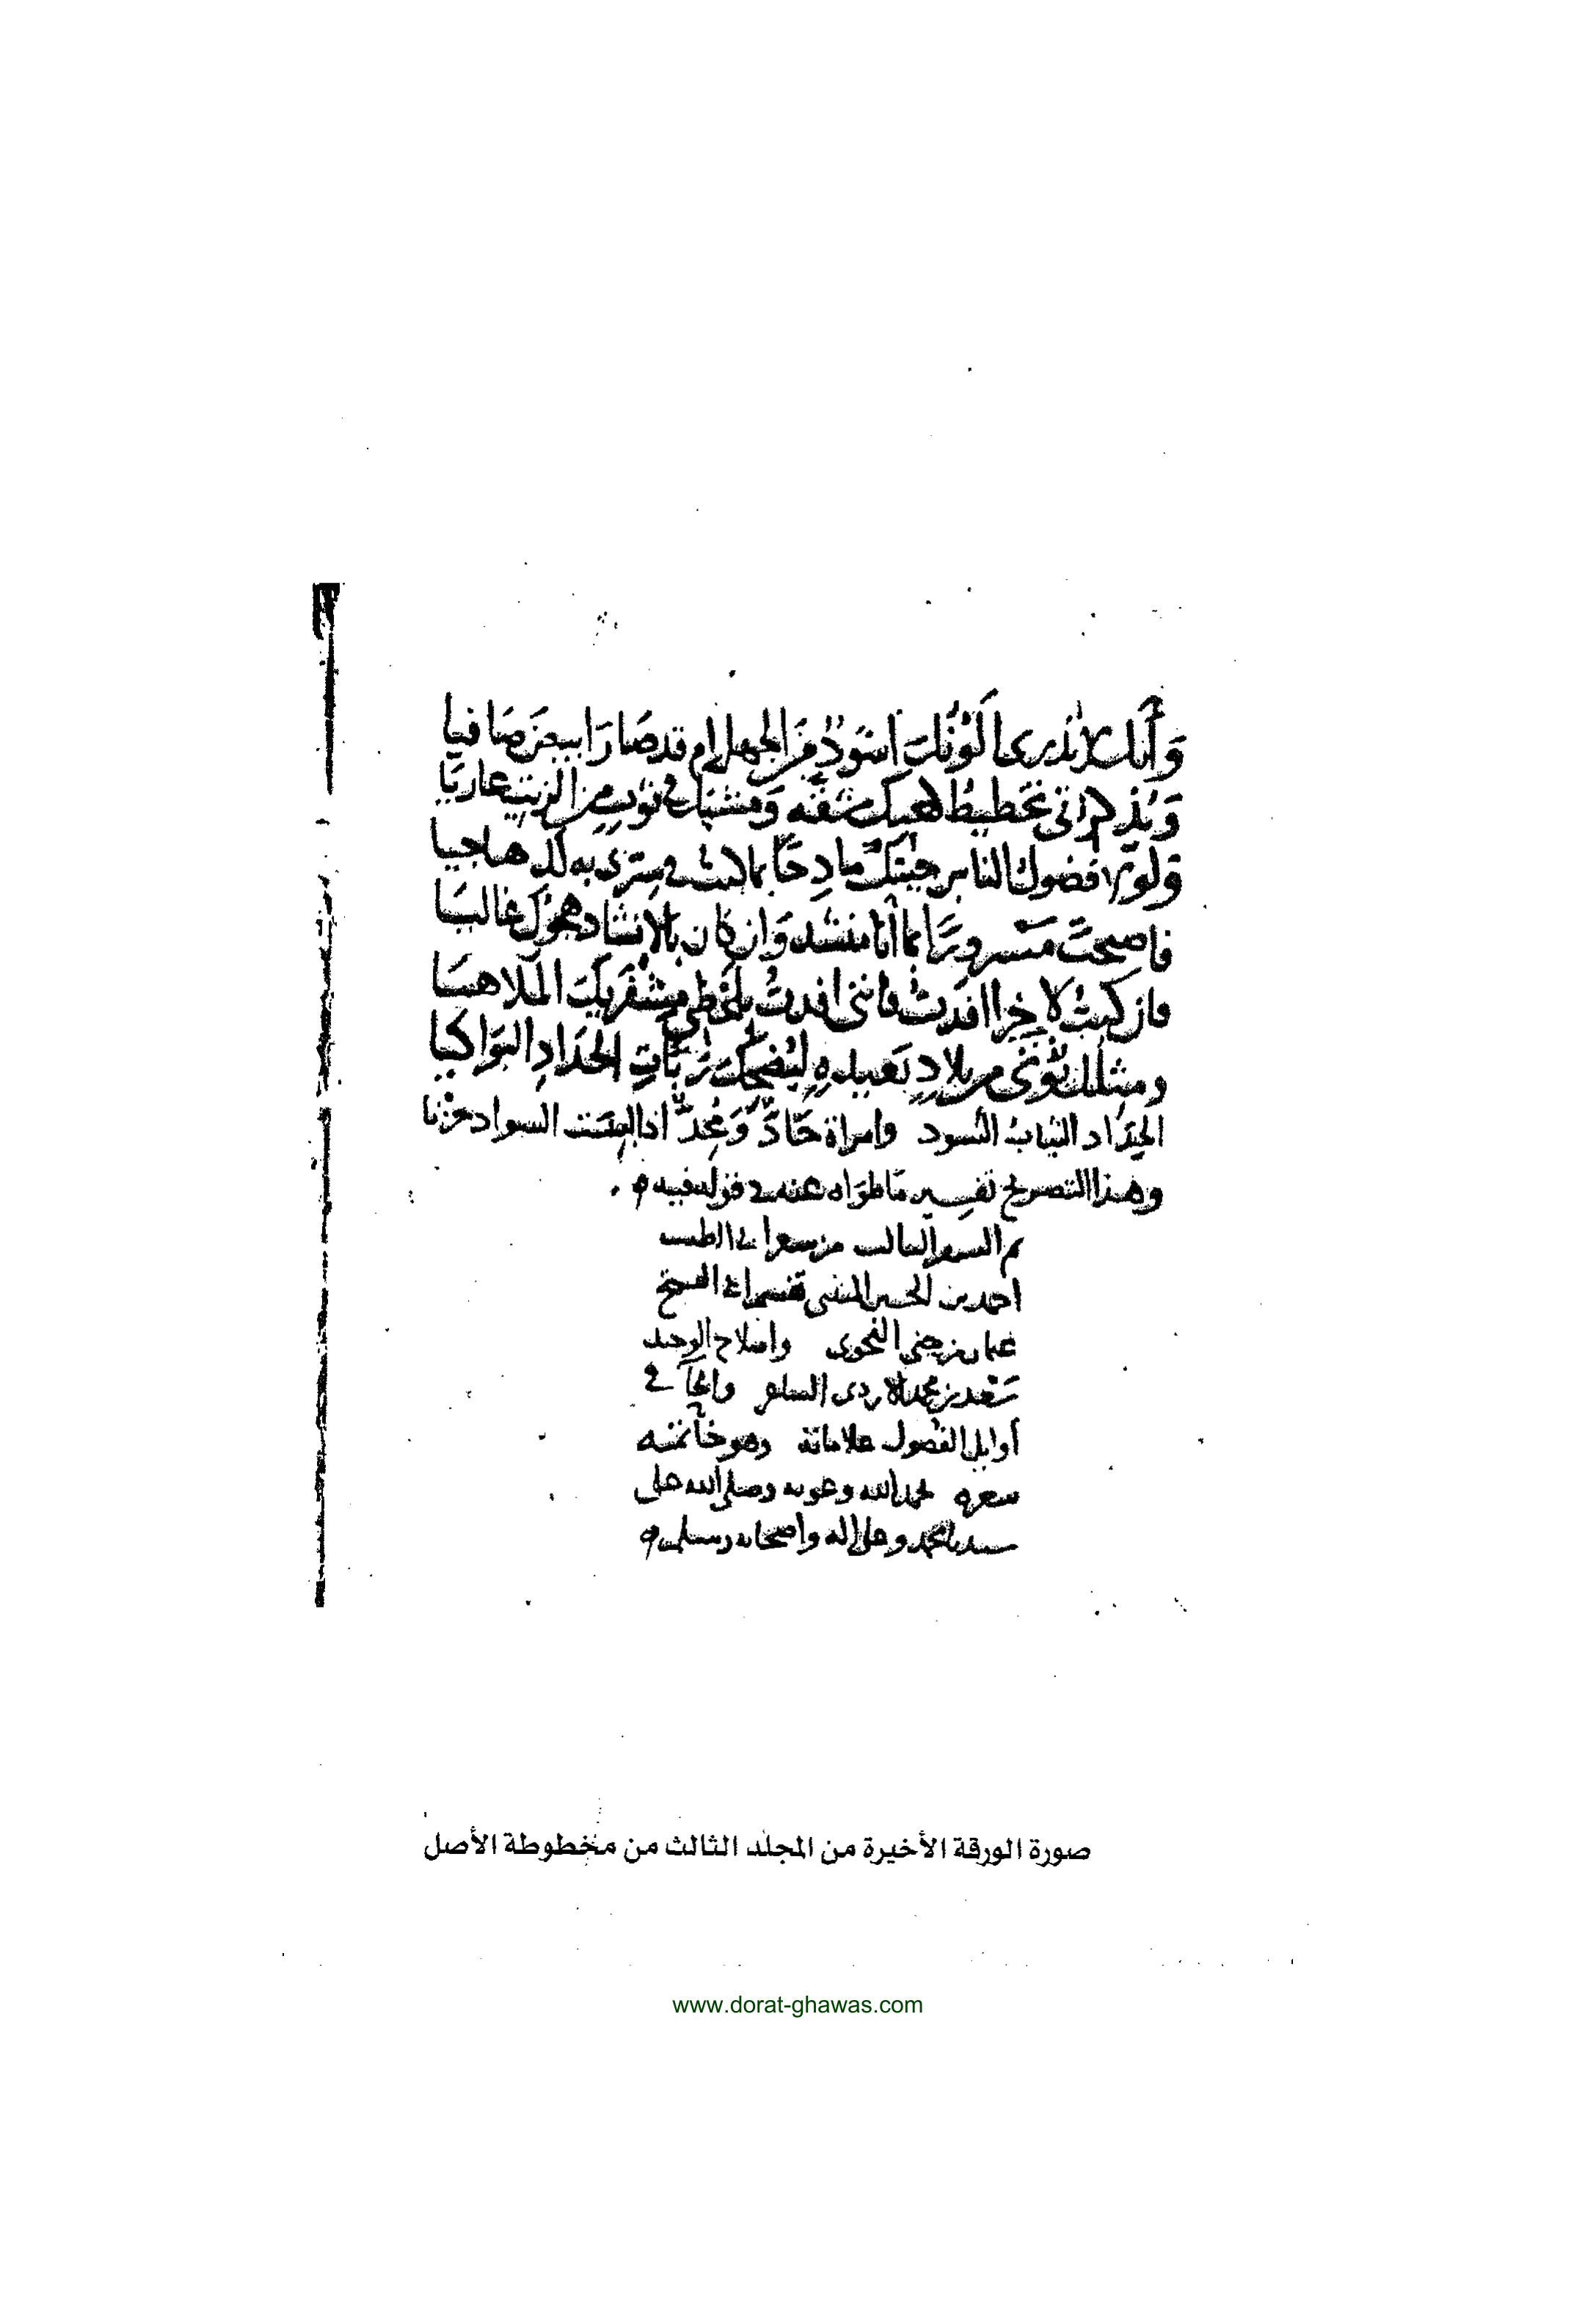 وَأَنَّكَ لا تَدرى أَلَوْنُكَ اَسْوَدٌ مِنَ الجهل ام قد صَارَ ابيضَ صَافيا
وَيُذكِرُنى تخطيطُ كعبِكَ شَقَّه وَمَشيَكَ فى ثوبٍ مِن الزيتِ عاريَا
وَلولا فضولُ الناسِ جيتكَ مادِحًا بما كنتُ فى سِرّى به لكَ هاجيا
فاصبحتَ مَسرورًا بما أنا منشد وَان كان بالانشاد هجوك غاليَا
فان كنتَ لا خيرًا افدتَ فاننى افدتُ بلحظى مِشفَريكَ الملاهيَا
ومثلك يُؤتى من بلادٍ بَعيدهٍ ليُضحِكَ رَبّاتِ الحِدَادِ البَوَاكيَا
الحِدَاد الثيابُ السُود وامراة حَادٌّ وَمُحِدٌّ اذا لبست السواد حزنا
وهذا التصريح تفسير مَا طوَاه عنه فى قوله فيه
تم السفر الثالث من شعر ابى الطيب
احمد بن الحسين المتنبى تفسير ابى الفتح
عثمان بن جنى النحوى واصلاح الوحيد
سَعد بن محمد الازدى
أوايل الفصول علاماته وهو خاتمة
شعره بحمد الله وعونه وصلى الله على
سيدنا محمد وعلى اله واصحابه وسلم
صورة الورقة الأخيرة من المجلد الثالث من مخطوطة الأصل
www.dorat-ghawas.com